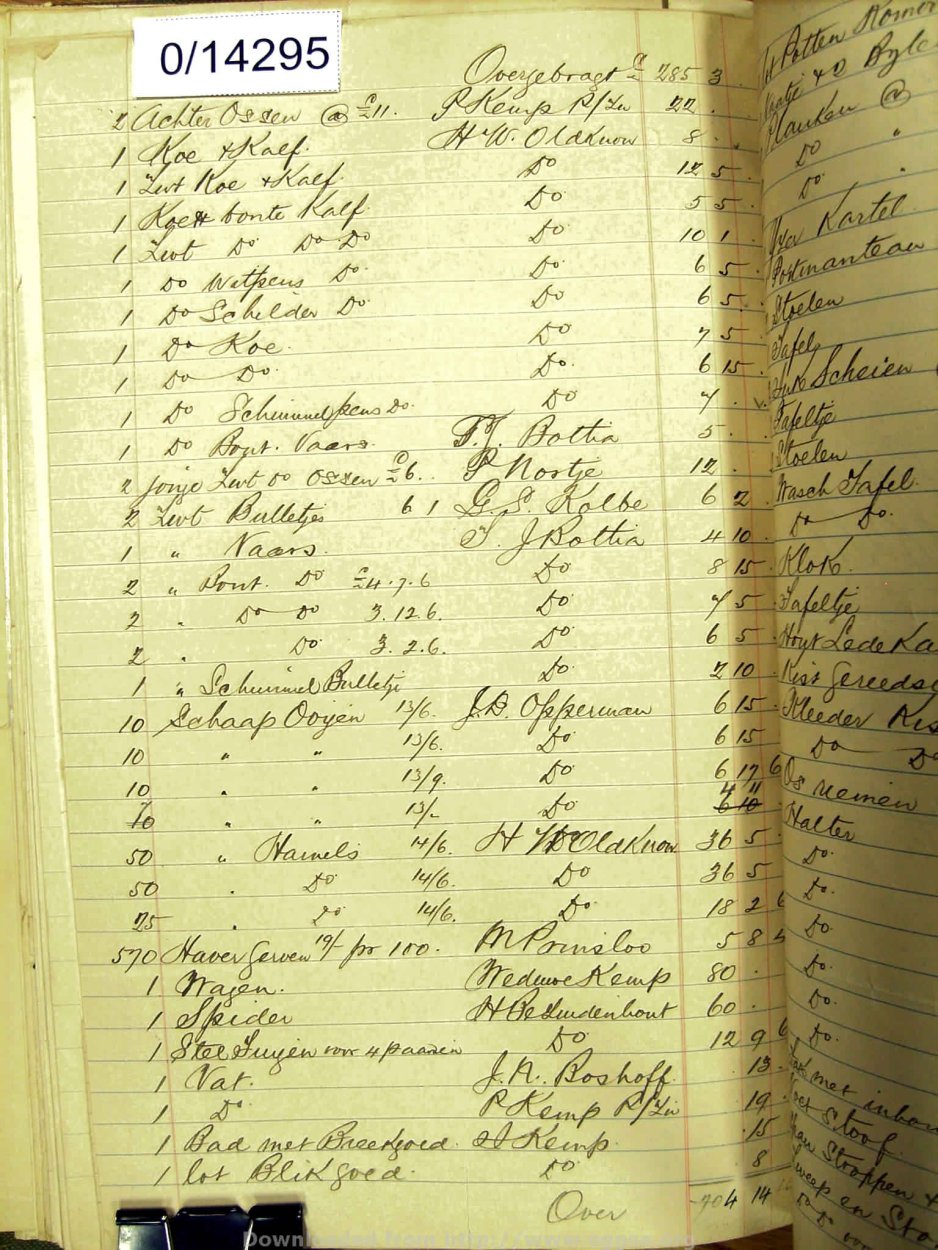 0/14295
Overgebragt £ 285 3
2 Achter Ossen @ £11. P Kemp P/Zn 22 .
1 Koe & Kalf. H W. Oldknow 8 .
1 Zwt Koe & Kalf. Do 12 5 .
1 Koe & bonte Kalf Do 5 5 .
1 Zwt Do Do Do Do 10 1
1 Do Witpens Do Do 6 5 .
1 Do Schilder Do Do 6 5 .
1 Do Koe. Do 7 5 .
1 Do Do. Do. 6 15
1 Do Schimmelpens Do. Do 7 .
1 Do Bont. Vaars. Botha 5 .
2 jonge Zwt do Ossen £6. P Nortje 12 .
2 Zwt Bulletjes 6 1 G. S. Kolbe 6 2
1 " Vaars. J Botha 4 10
2 " Bont. Do £4.7.6 Do 8 15
2 " Do Do 3.12.6. Do 7 5
2 " Do 3.2.6. Do 6 5
1 " Schimmel Bulletje Do 2 10
10 Schaap Ooyen 13/6. J.D. Opperman 6 15
10 " " 13/6. Do 6 15
10 " " 13/9. Do 6 17 6
" " 13/- Do 4 11
50 " Hamels 14/6. H W Oldknow 36 5
50 " Do 14/6. Do 36 5
25 " Do 14/6. Do 18 2 6
570 Haver Gerven 19/- pr 100. M Prinsloo 5 8
1 Wagen. Weduwe Kemp 80 .
1 Spider H Bezuidenhout 60 .
1 Stel Tuigen voor 4 paarden Do 12 9 6
1 Vat. Boshoff. 13
1 Do P Kemp P/Zn 19
1 Bad met Breekgoed. Kemp. 15
1 lot Blikgoed. Do 8
Over 704 14
Potten
Planken @
Do "
Do
Kartel
Postmanteau
Stoelen
Tafel
Scheien
Tafeltje
Stoelen
Wasch Tafel.
Do Do.
Klok.
Tafeltje
Kist Gereeds
Kleeder Kis
Do Do
Os riemen
Halter
Do.
Do.
Do.
Do.
Do.
Do.
met inhou
Stoof
Stroppen &
Sweep en
Downloaded from http://www.eggsa.org